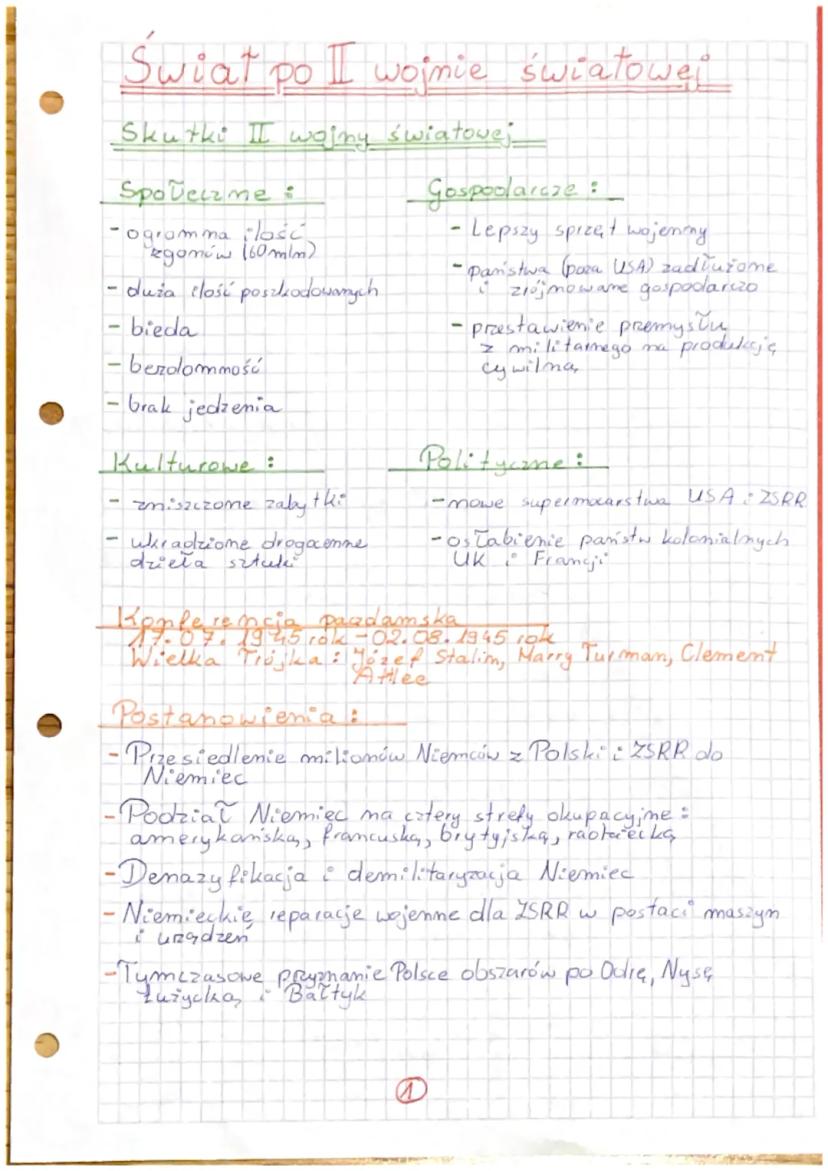 Świat po II wojnie światowej
Skutki II wojny światowej
Społeczne :
- ogromna ilość
zgonów (60 mln)
- duża ilość poszkodowanych
- bieda
- bezdomność
- brak jedzenia
Gospodarcze :
- Lepszy sprzęt wojenny
- państwa (poza USA) zadłużone
i zrójnowane gospodarczo
- przestawienie przemysłu
z militarnego na produkcję
cywilną
Kulturowe :
- zniszczone zabytki
- ukradzione drogocenne
dzieła sztuki
Polityczne :
- nowe supermocarstwa USA i ZSRR
- osłabienie państw kolonialnych
UK i Francji
Konferencja poczdamska
17.07.1945 rok - 02.08.1945 rok
Wielka Trójka : Józef Stalin, Marry Turman, Clement
Attlee
Postanowienia :
- Przesiedlenie milionów Niemców z Polski i ZSRR do
Niemiec
- Podział Niemiec na cztery strefy okupacyjne :
amerykańską, francuską, brytyjską, radziecką
- Denazyfikacja i demilitaryzacja Niemiec
- Niemieckię reparacje wojenne dla ZSRR w postaci maszyn
i urządzeń
- Tymczasowe przyznanie Polsce obszarów po Odrę, Nysę
Łużycką i Bałtyk
1